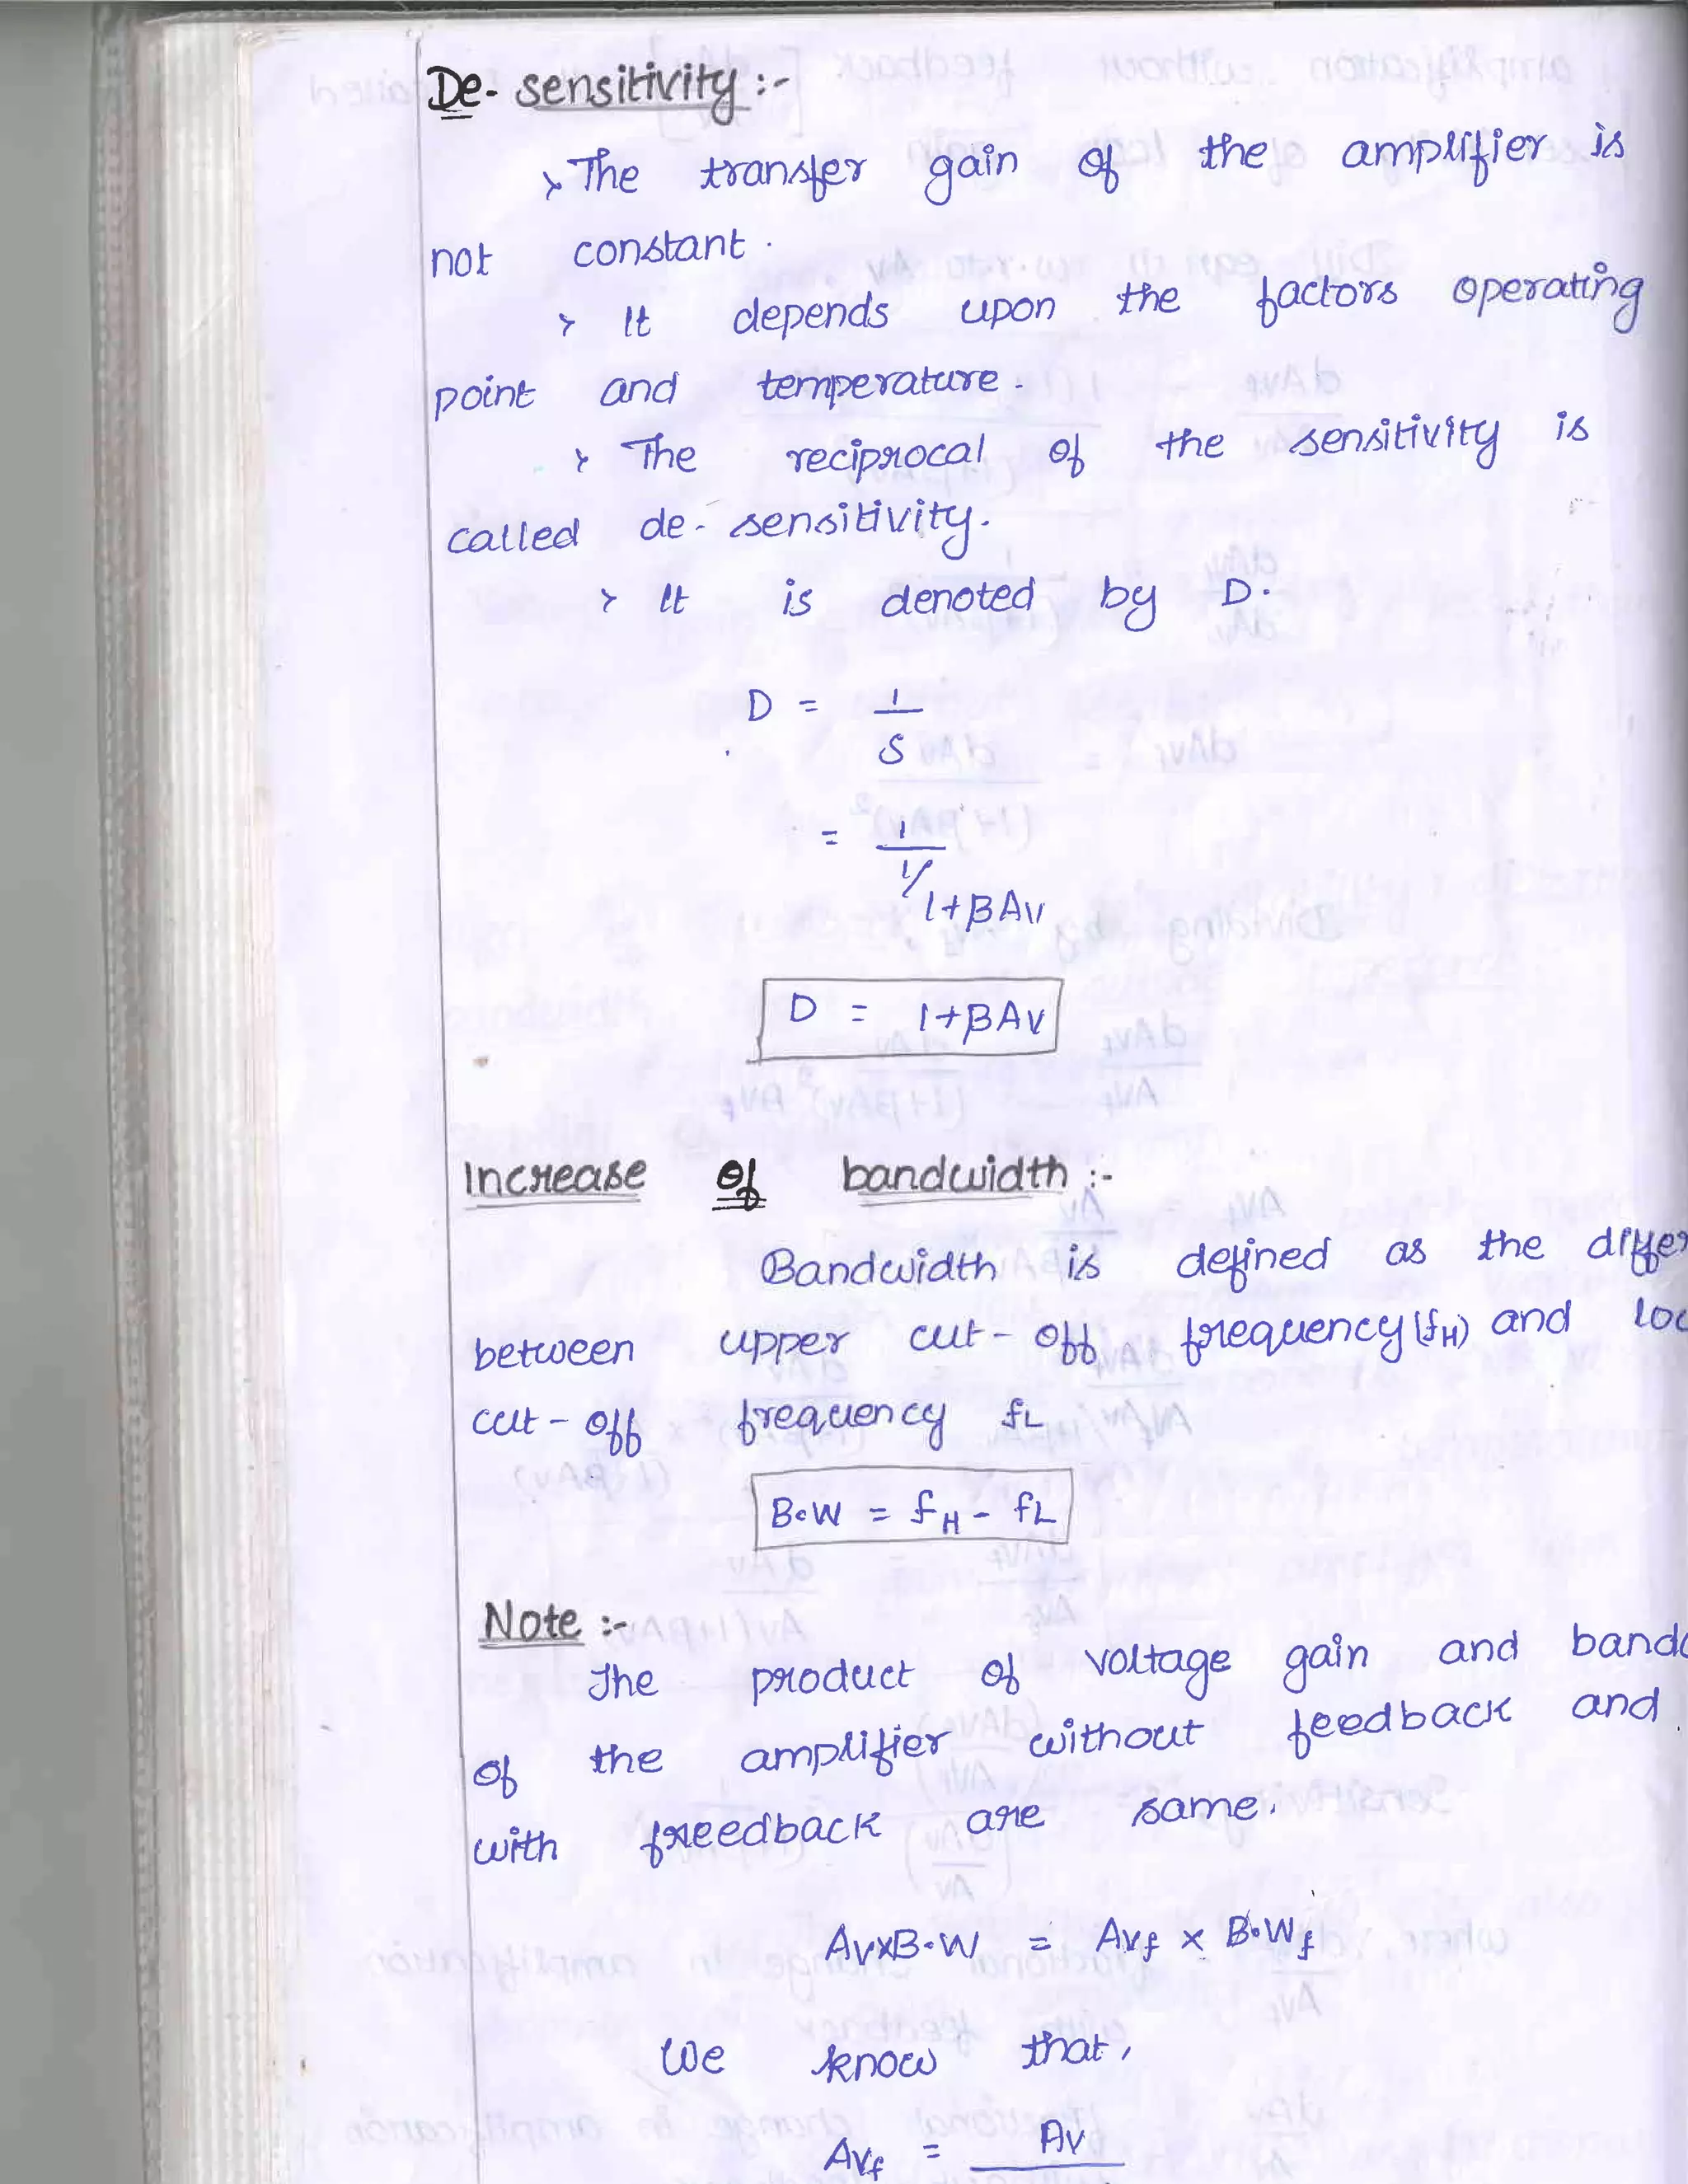 De-sensitivity :-
> The transfer gain of the amplifier is
not constant.
> It depends upon the factors operating
point and temperature.
> The reciprocal of the sensitivity is
called de-sensitivity.
> It is denoted by D.
D = 1
S
= 1
1/
1+βAv
D = 1+βAv
Increase of bandwidth :-
Bandwidth is defined as the differ
between upper cut-off frequency (fH) and lo
cut-off frequency fL
B.W = fH - fL
Note :-
The product of voltage gain and band
of the amplifier without feedback and
with freedback are same.
Av×B.W = Avf × B.Wf
We know that,
Avf = Av